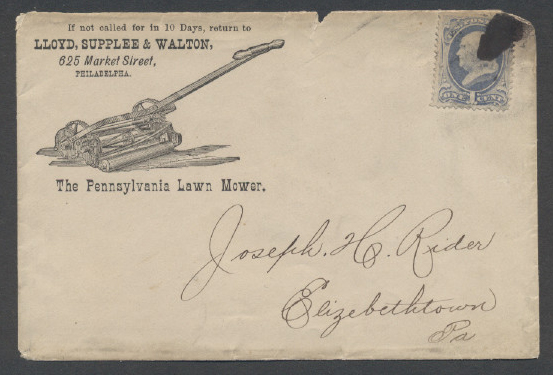 If not called for in 10 Days, return to
LLOYD, SUPPLEE & WALTON,
625 Market Street,
PHILADELPHA.
The Pennsylvania Lawn Mower.
ONE CENT
1
Joseph. H. Rider
Elizebethtown
Pa